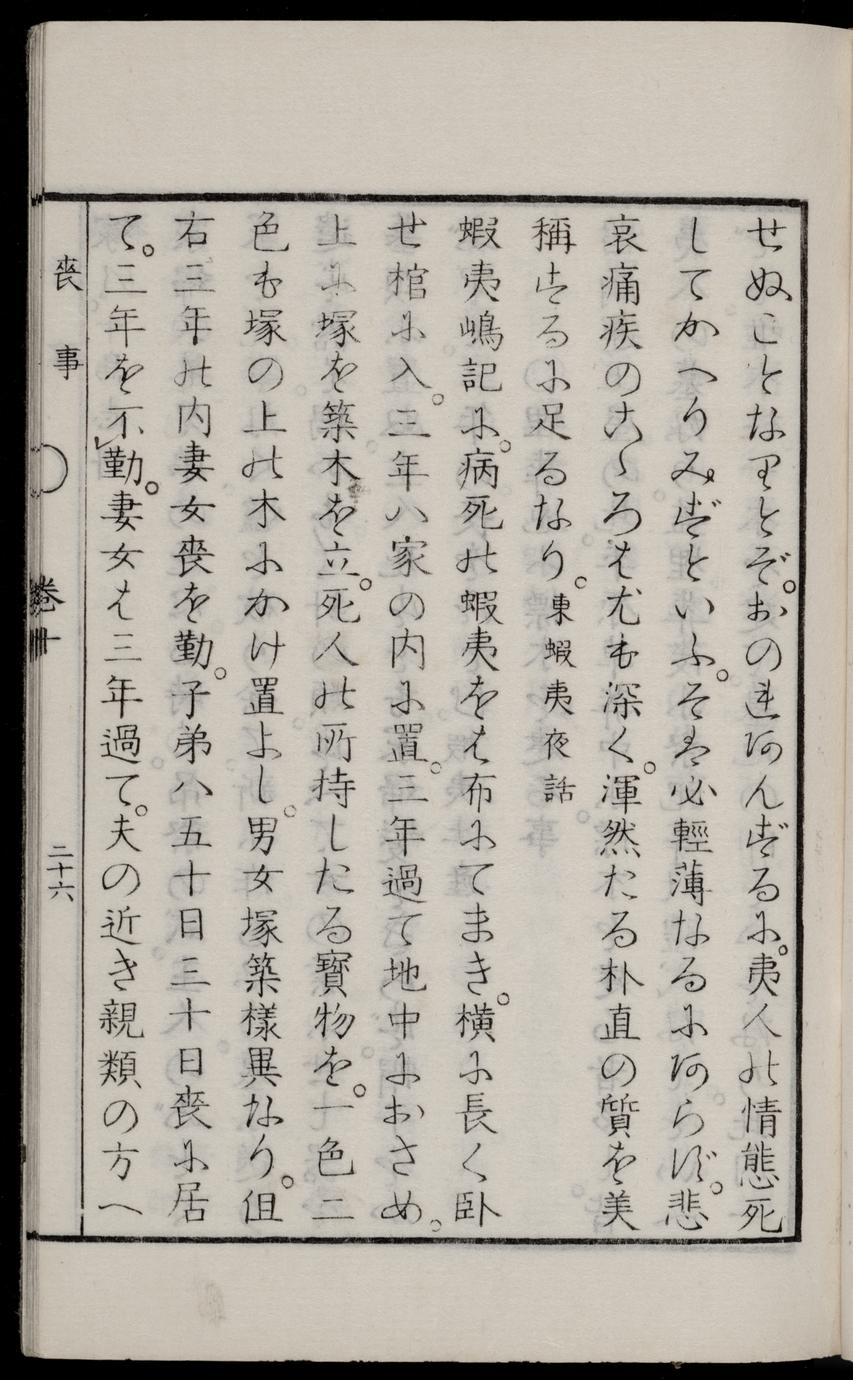 せぬことなりとぞ。おのれあんずるに。夷人の情態死
してかへりみずといふ。そは必輕薄なるにあらず。悲
哀痛疾のこゝろは尤も深く。渾然たる朴直の質を美
稱するに足るなり。東蝦夷夜話
蝦夷嶋記に。病死の蝦夷をは布にてまき。横に長く臥
せ棺に入。三年ハ家の内に置。三年過て地中におさめ。
上に塚を築木を立。死人の所持したる寳物を。一色二
色も塚の上の木にかけ置よし。男女塚築樣異なり。但
右三年の内妻女喪を勤。子弟ハ五十日三十日喪に居
て。三年を不勤。妻女は三年過て。夫の近き親類の方へ
喪事
卷十
二十六